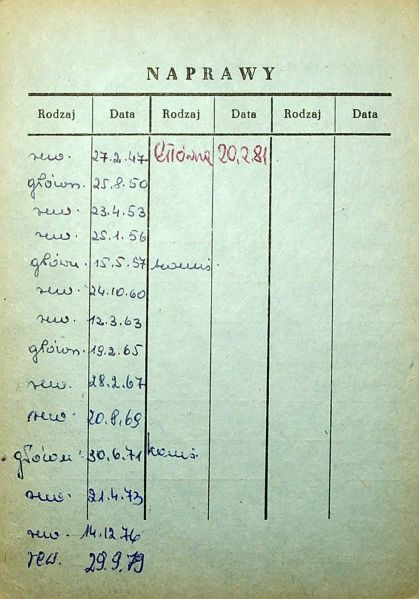 NAPRAWY
Rodzaj Data Rodzaj Data Rodzaj Data
rew. 27.2.47 Główna 20.2.81
główn. 25.8.50
rew. 23.4.53
rew. 25.1.56
główn. 15.5.57
rew. 24.10.60
rew. 12.3.63
główn. 19.2.65
rew. 28.2.67
rew. 20.8.69
główn. 30.6.71
rew. 21.4.73
rew. 14.12.76
rew. 29.9.79